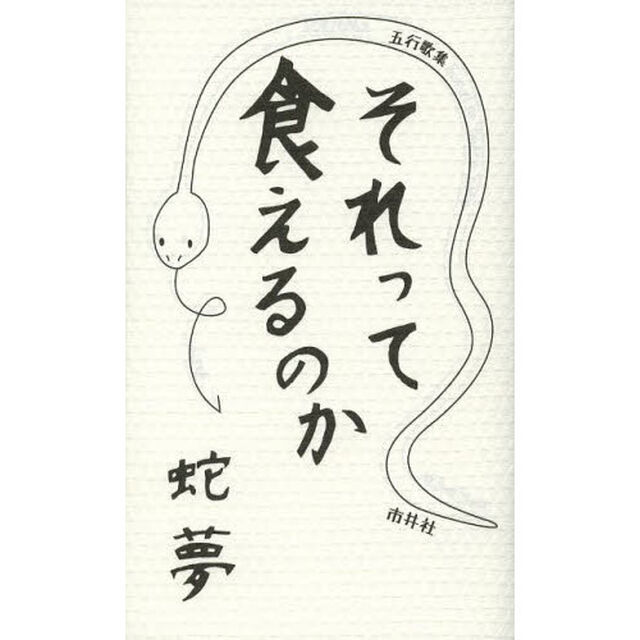 五行歌集
それって
食えるのか
蛇夢
市井社